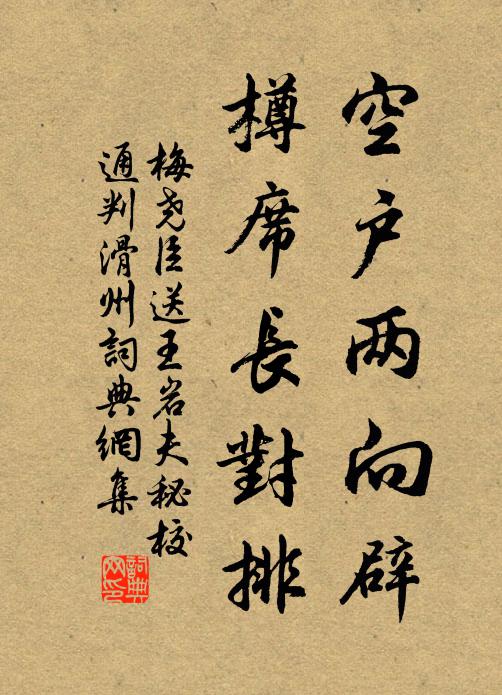 空户两向辟
樽席長對排
梅尧臣送王岩夫秘校
通判滑州詞典網集
詞典网印